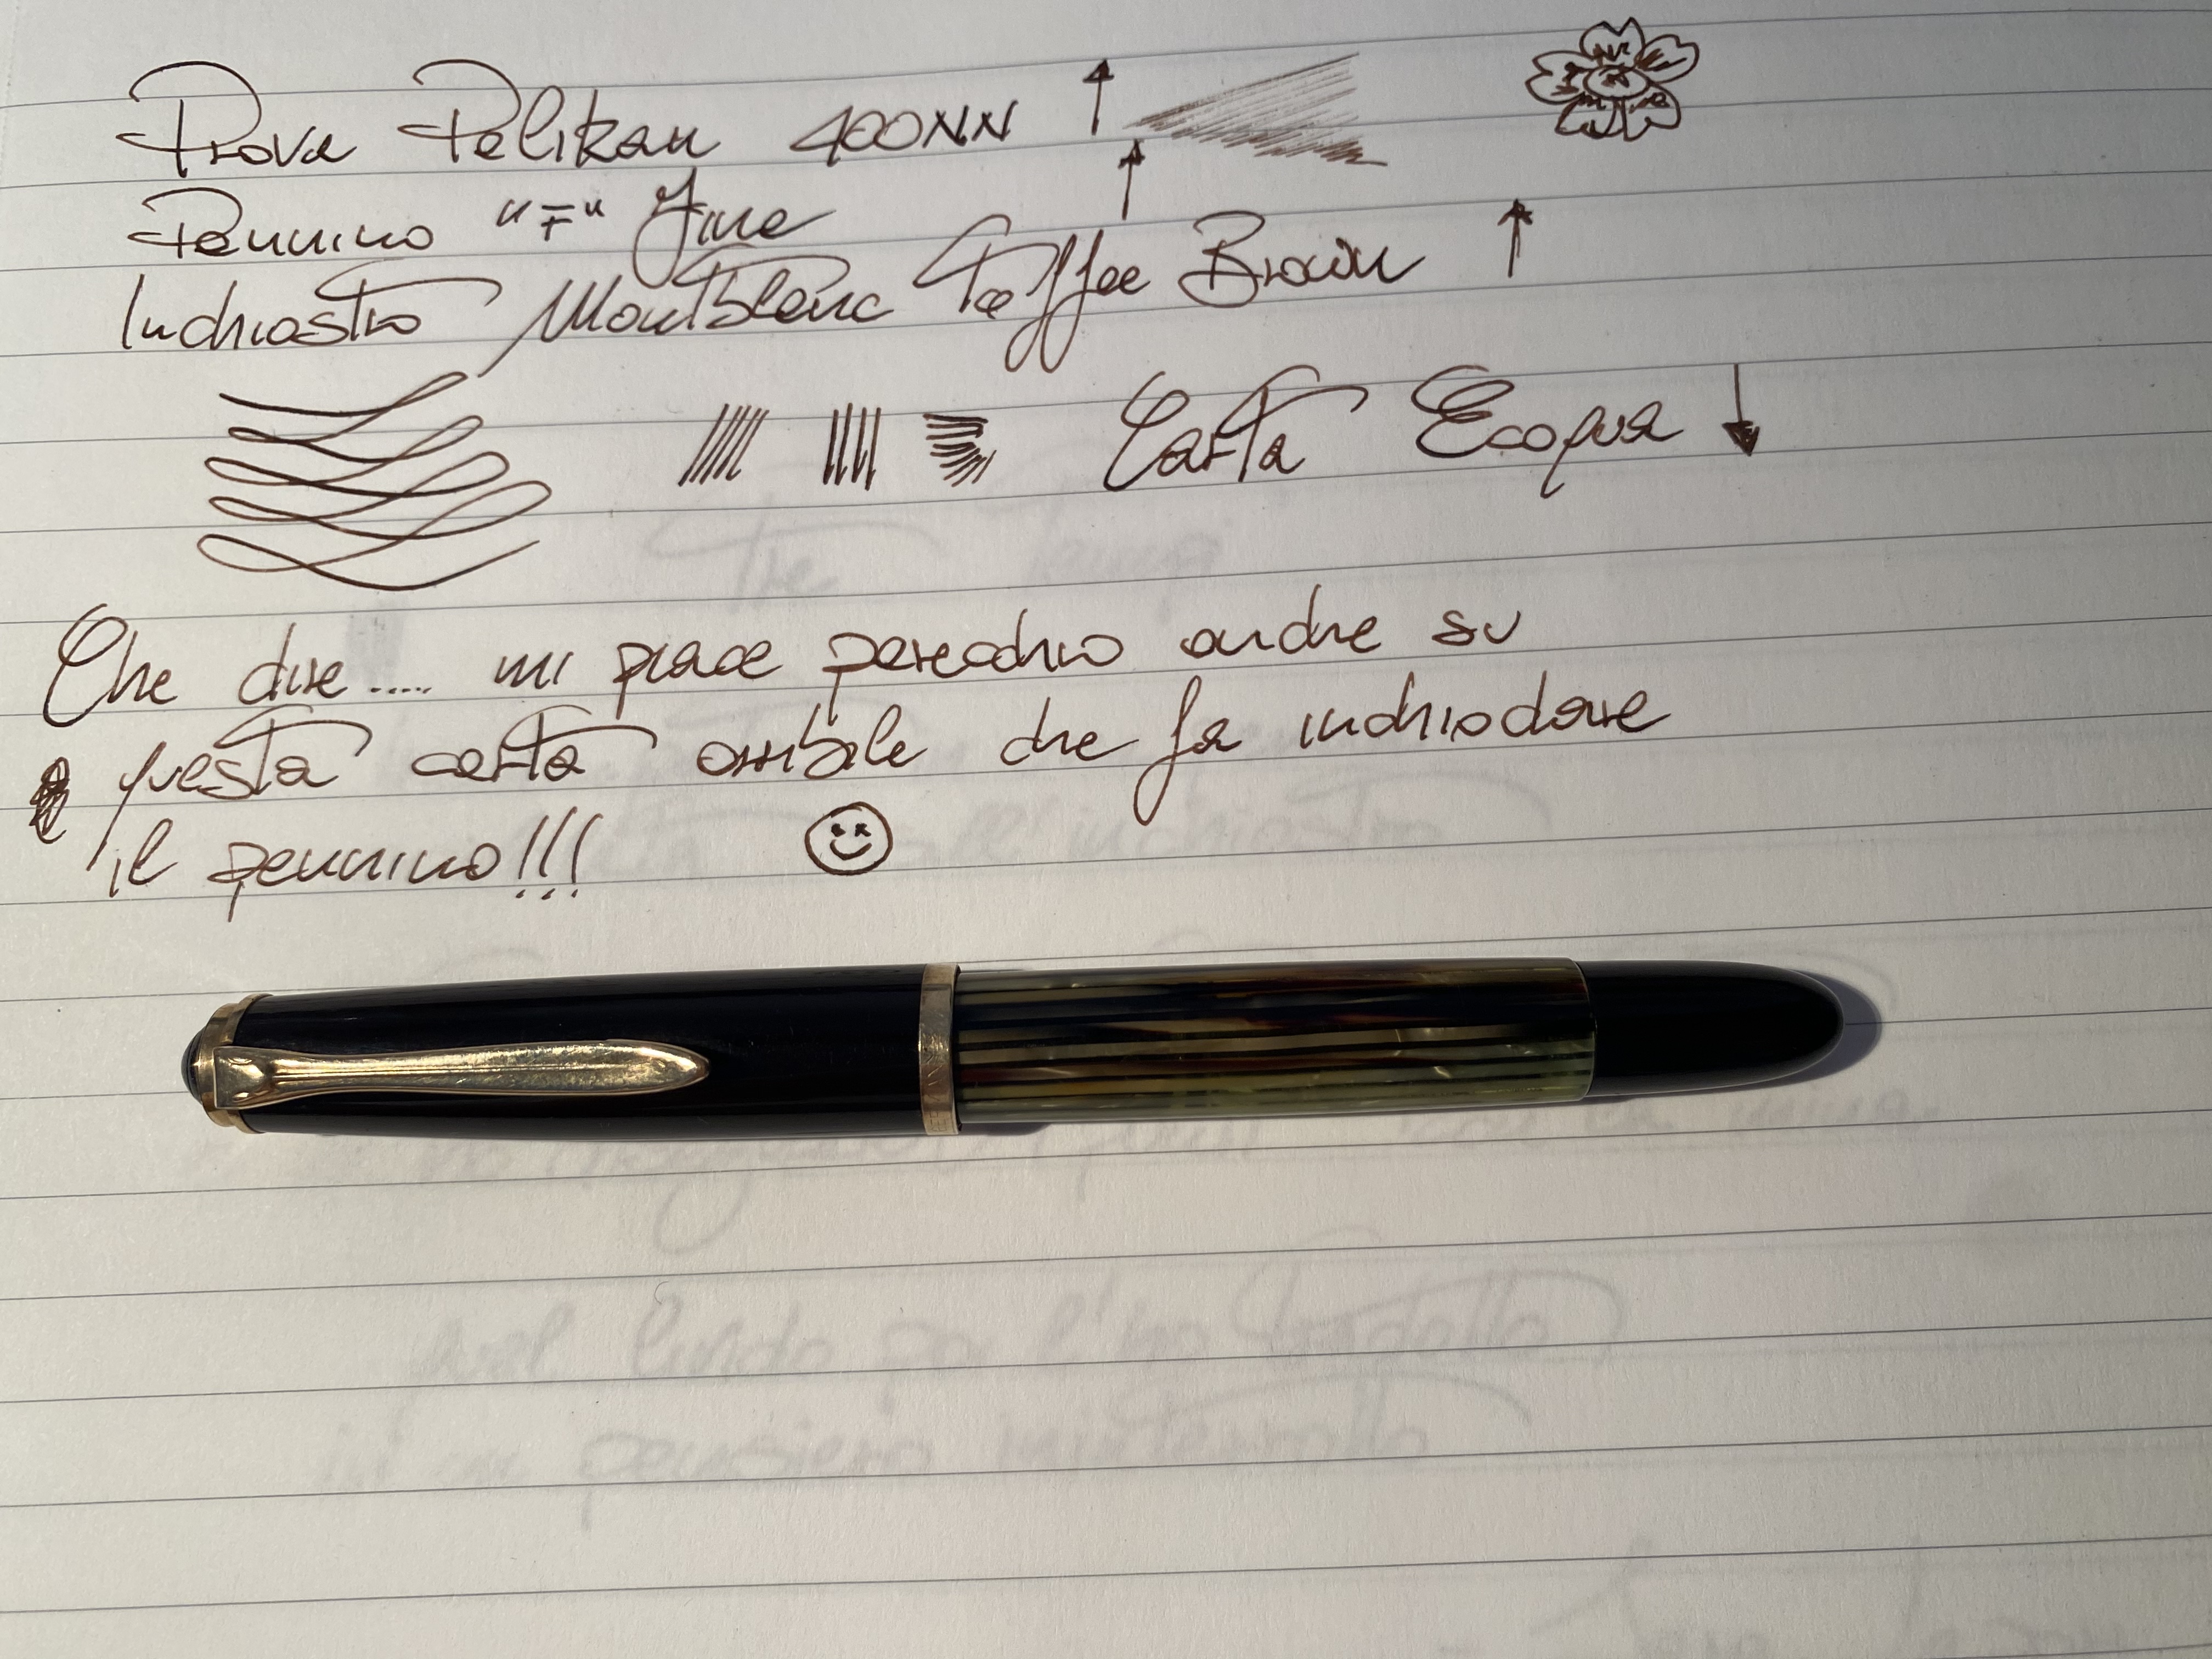 Prova Pelikan 400NN
Pennino "F" Fine
Inchiostro Montblanc Toffee Brown
Carta Ecoqua
Che dire..... mi piace parecchio anche su
questa carta orribile che fa inchiodare
il pennino!!!